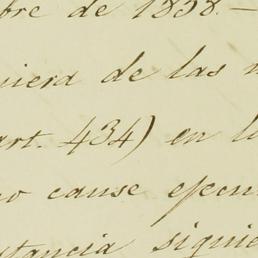 bre de 1858.—
quiera de las
art. 434) en
no cause ejecu
stancia siguie